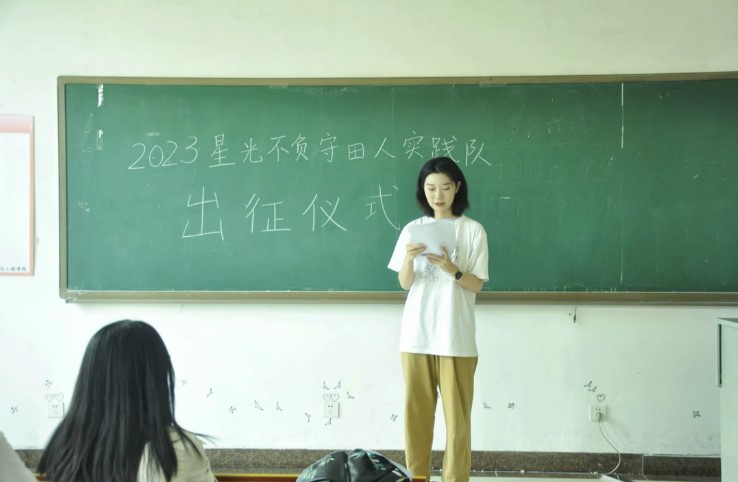 2023星光不负守田人实践队
出征仪式